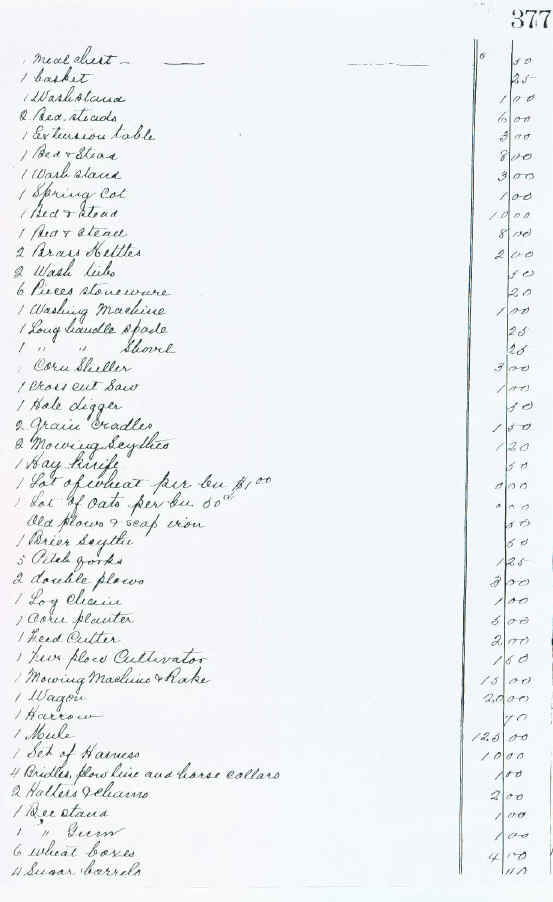 377
1 Meal chest 50
1 basket 25
1 Washstand 1 00
2 Bed steads 6 00
1 Extension table 3 00
1 Bed & Stead 8 00
1 Wash stand 3 00
1 Spring Cot 1 00
1 Bed & stead 10 00
1 Bed & stead 8 00
2 Brass Kettles 2 00
2 Wash tubs 50
6 Pieces stoneware 20
1 Washing Machine 1 00
1 Long handle spade 25
1 " " Shovel 25
1 Corn Sheller 3 00
1 Cross cut Saw 1 00
1 Hole digger 50
2 Grain Cradles 1 50
2 Mowing Scythes 1 20
1 Hay Knife 50
1 Lot of wheat per bu $1 00 0 00
1 Lot of oats per bu 000
Old plows & scap iron 50
1 Brier Scythe 50
5 Pitch forks 1 25
2 double plows 3 00
1 Log Chain 1 00
1 Corn planter 5 00
1 Feed Cutter 2 00
1 Five plow Cultivator 1 50
1 Mowing Machine & Rake 15 00
1 Wagon 20 00
1 Harrow 70
1 Mule 125 00
1 Set of Harness 10 00
4 Bridles, plow line and horse collars 1 00
2 Halters & chains 2 00
1 Bee stand 1 00
1 " Gum 1 00
6 wheat boxes 4 00
4 Sugar barrels 40